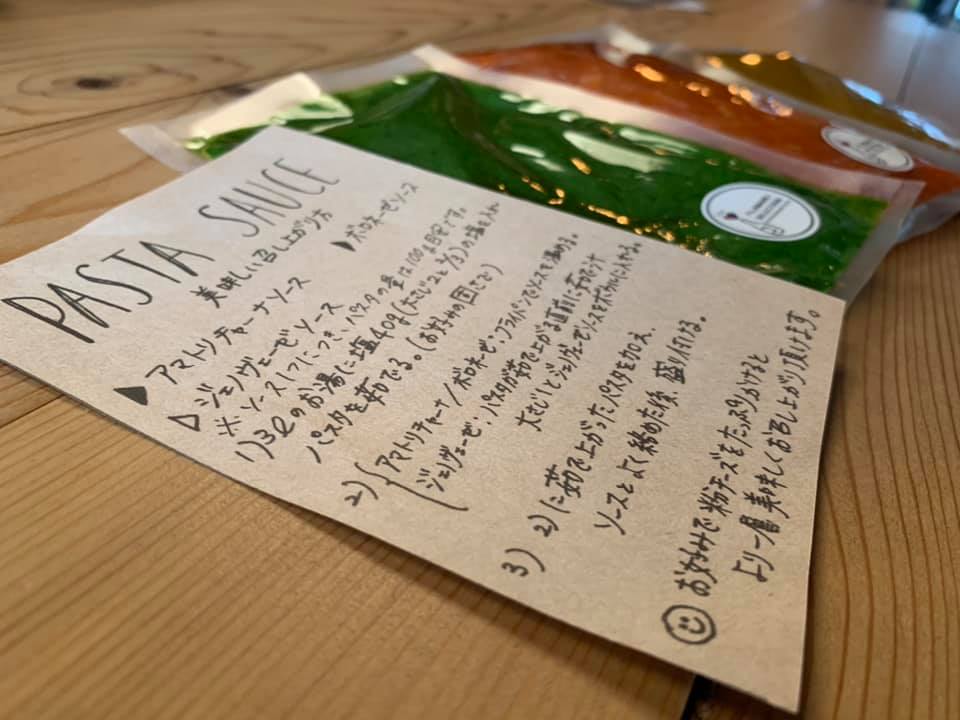 PASTA SAUCE
美味しい召し上がり方
▶ アマトリチャーナソース ▶ ボロネーゼソース
▷ ジェノヴェーゼソース
※ソース1つにつき、パスタの量は100g目安です。
1) 3ℓのお湯に塩40g(大さじ2と2/3)の塩を入れ
パスタを茹でる。(お好みの固さで)
2) アマトリチャーナ/ボロネーゼ:フライパンでソースを温める。
ジェノヴェーゼ:パスタが茹で上がる直前に茹で汁
大さじ1とジェノヴェーゼソースをボウルに入れる。
3) 2)に茹で上がったパスタを加え、
ソースとよく絡めた後、盛り付ける。
お好みで粉チーズをたっぷりかけると
より一層美味しくお召し上がり頂けます。